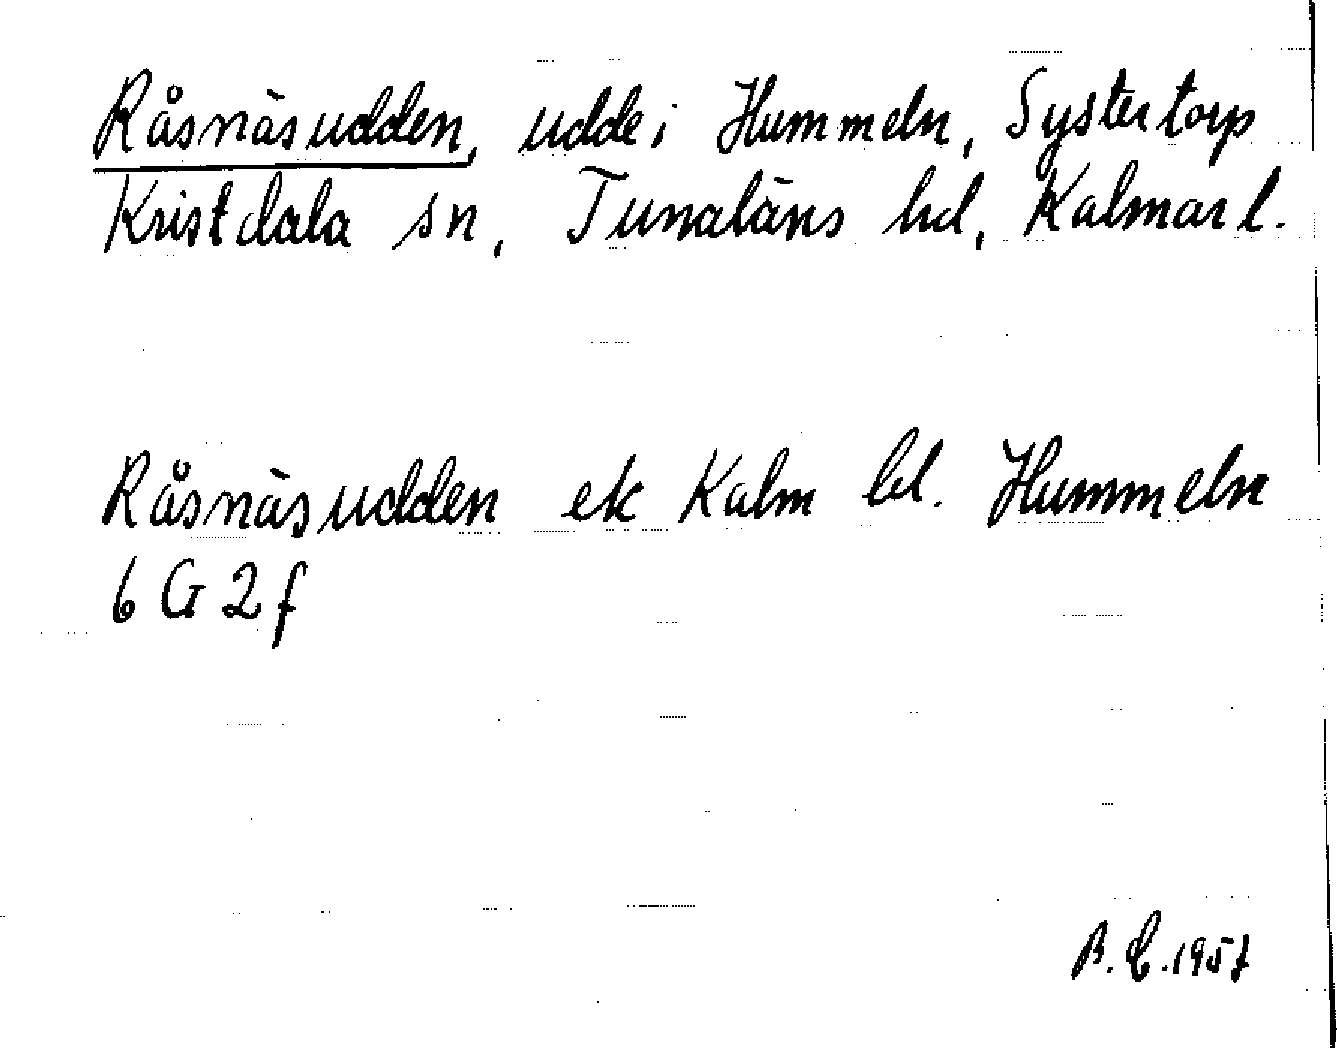 Råsnäsudden, udde i Hummeln, Systertorp
Kristdala sn, Tunaläns hd, Kalmar l.
Råsnäsudden ek Kalm bl. Hummeln
6 G 2 f
1957